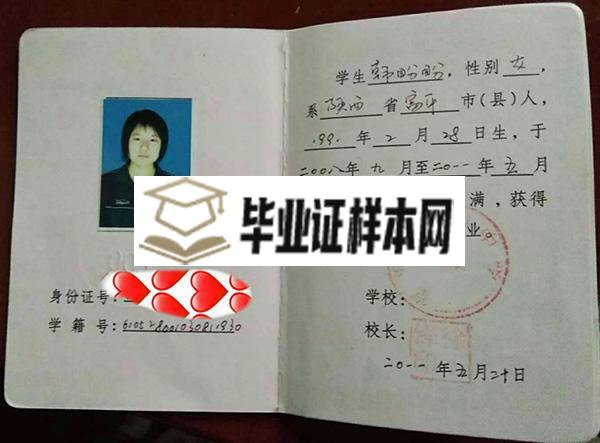 身份证号:
学籍号:610528001030811930
学生韩盼盼,性别女,
系陕西省富平市(县)人,
199 年2月28日生,于
二00八年九月至二0一一年五月
满,获得
毕业证样本网
业。
学校:
校长:
二0一一年五月二十日